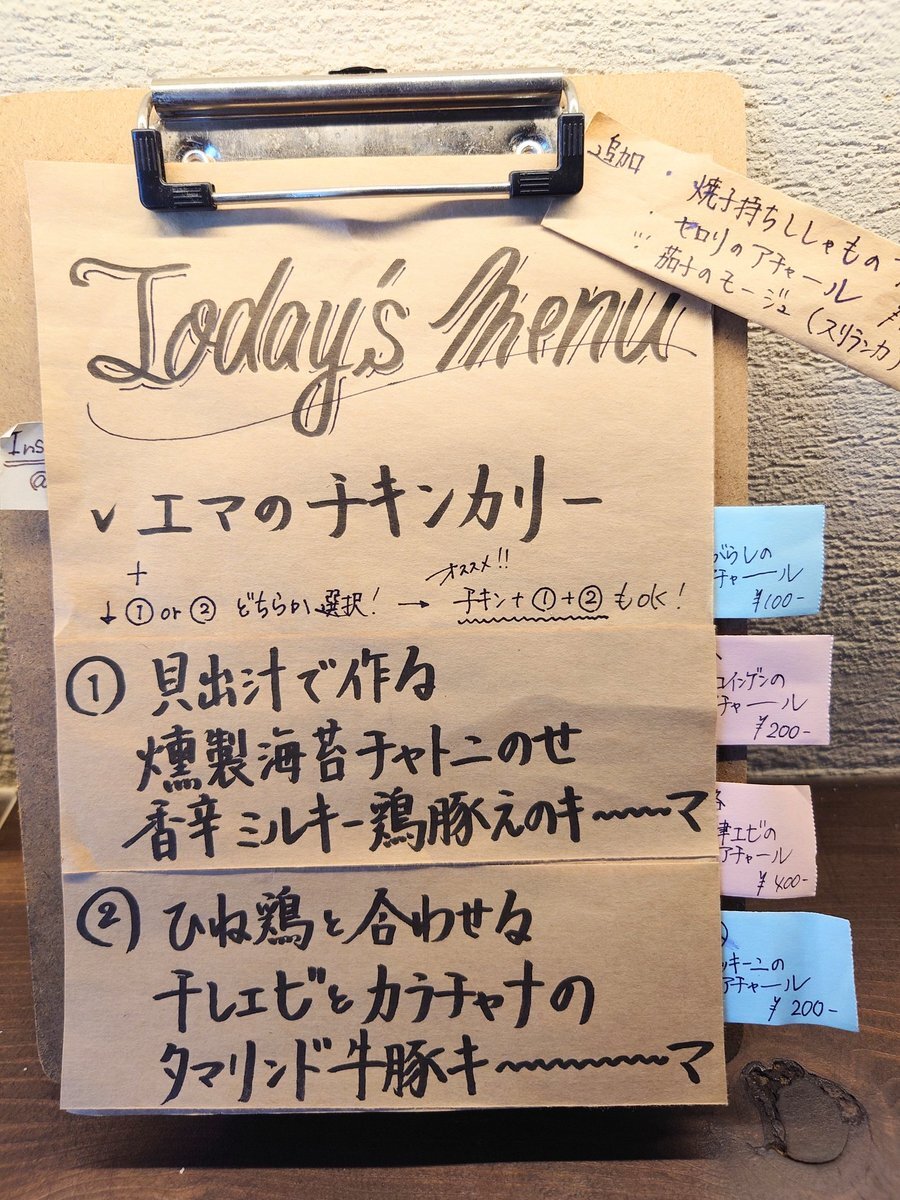 Today's Menu
追加
・焼子持ちししゃもの
・セロリのアチャール
茄子のモージュ(スリランカ)
Ins
@
✓ エマのチキンカリー
+
オススメ!!
↓①or② どちらか選択! → チキン+①+②もOK!
① 貝出汁で作る
燻製海苔チャトニのせ
香辛ミルキー鶏豚えのキ〜〜マ
② ひね鶏と合わせる
干しエビとカラチャナの
タマリンド牛豚キ〜〜〜マ
がらしの
チャール
¥100-
コインゲンの
チャール
¥200-
津エビの
アチャール
¥400-
ッキーニの
アチャール
¥200-